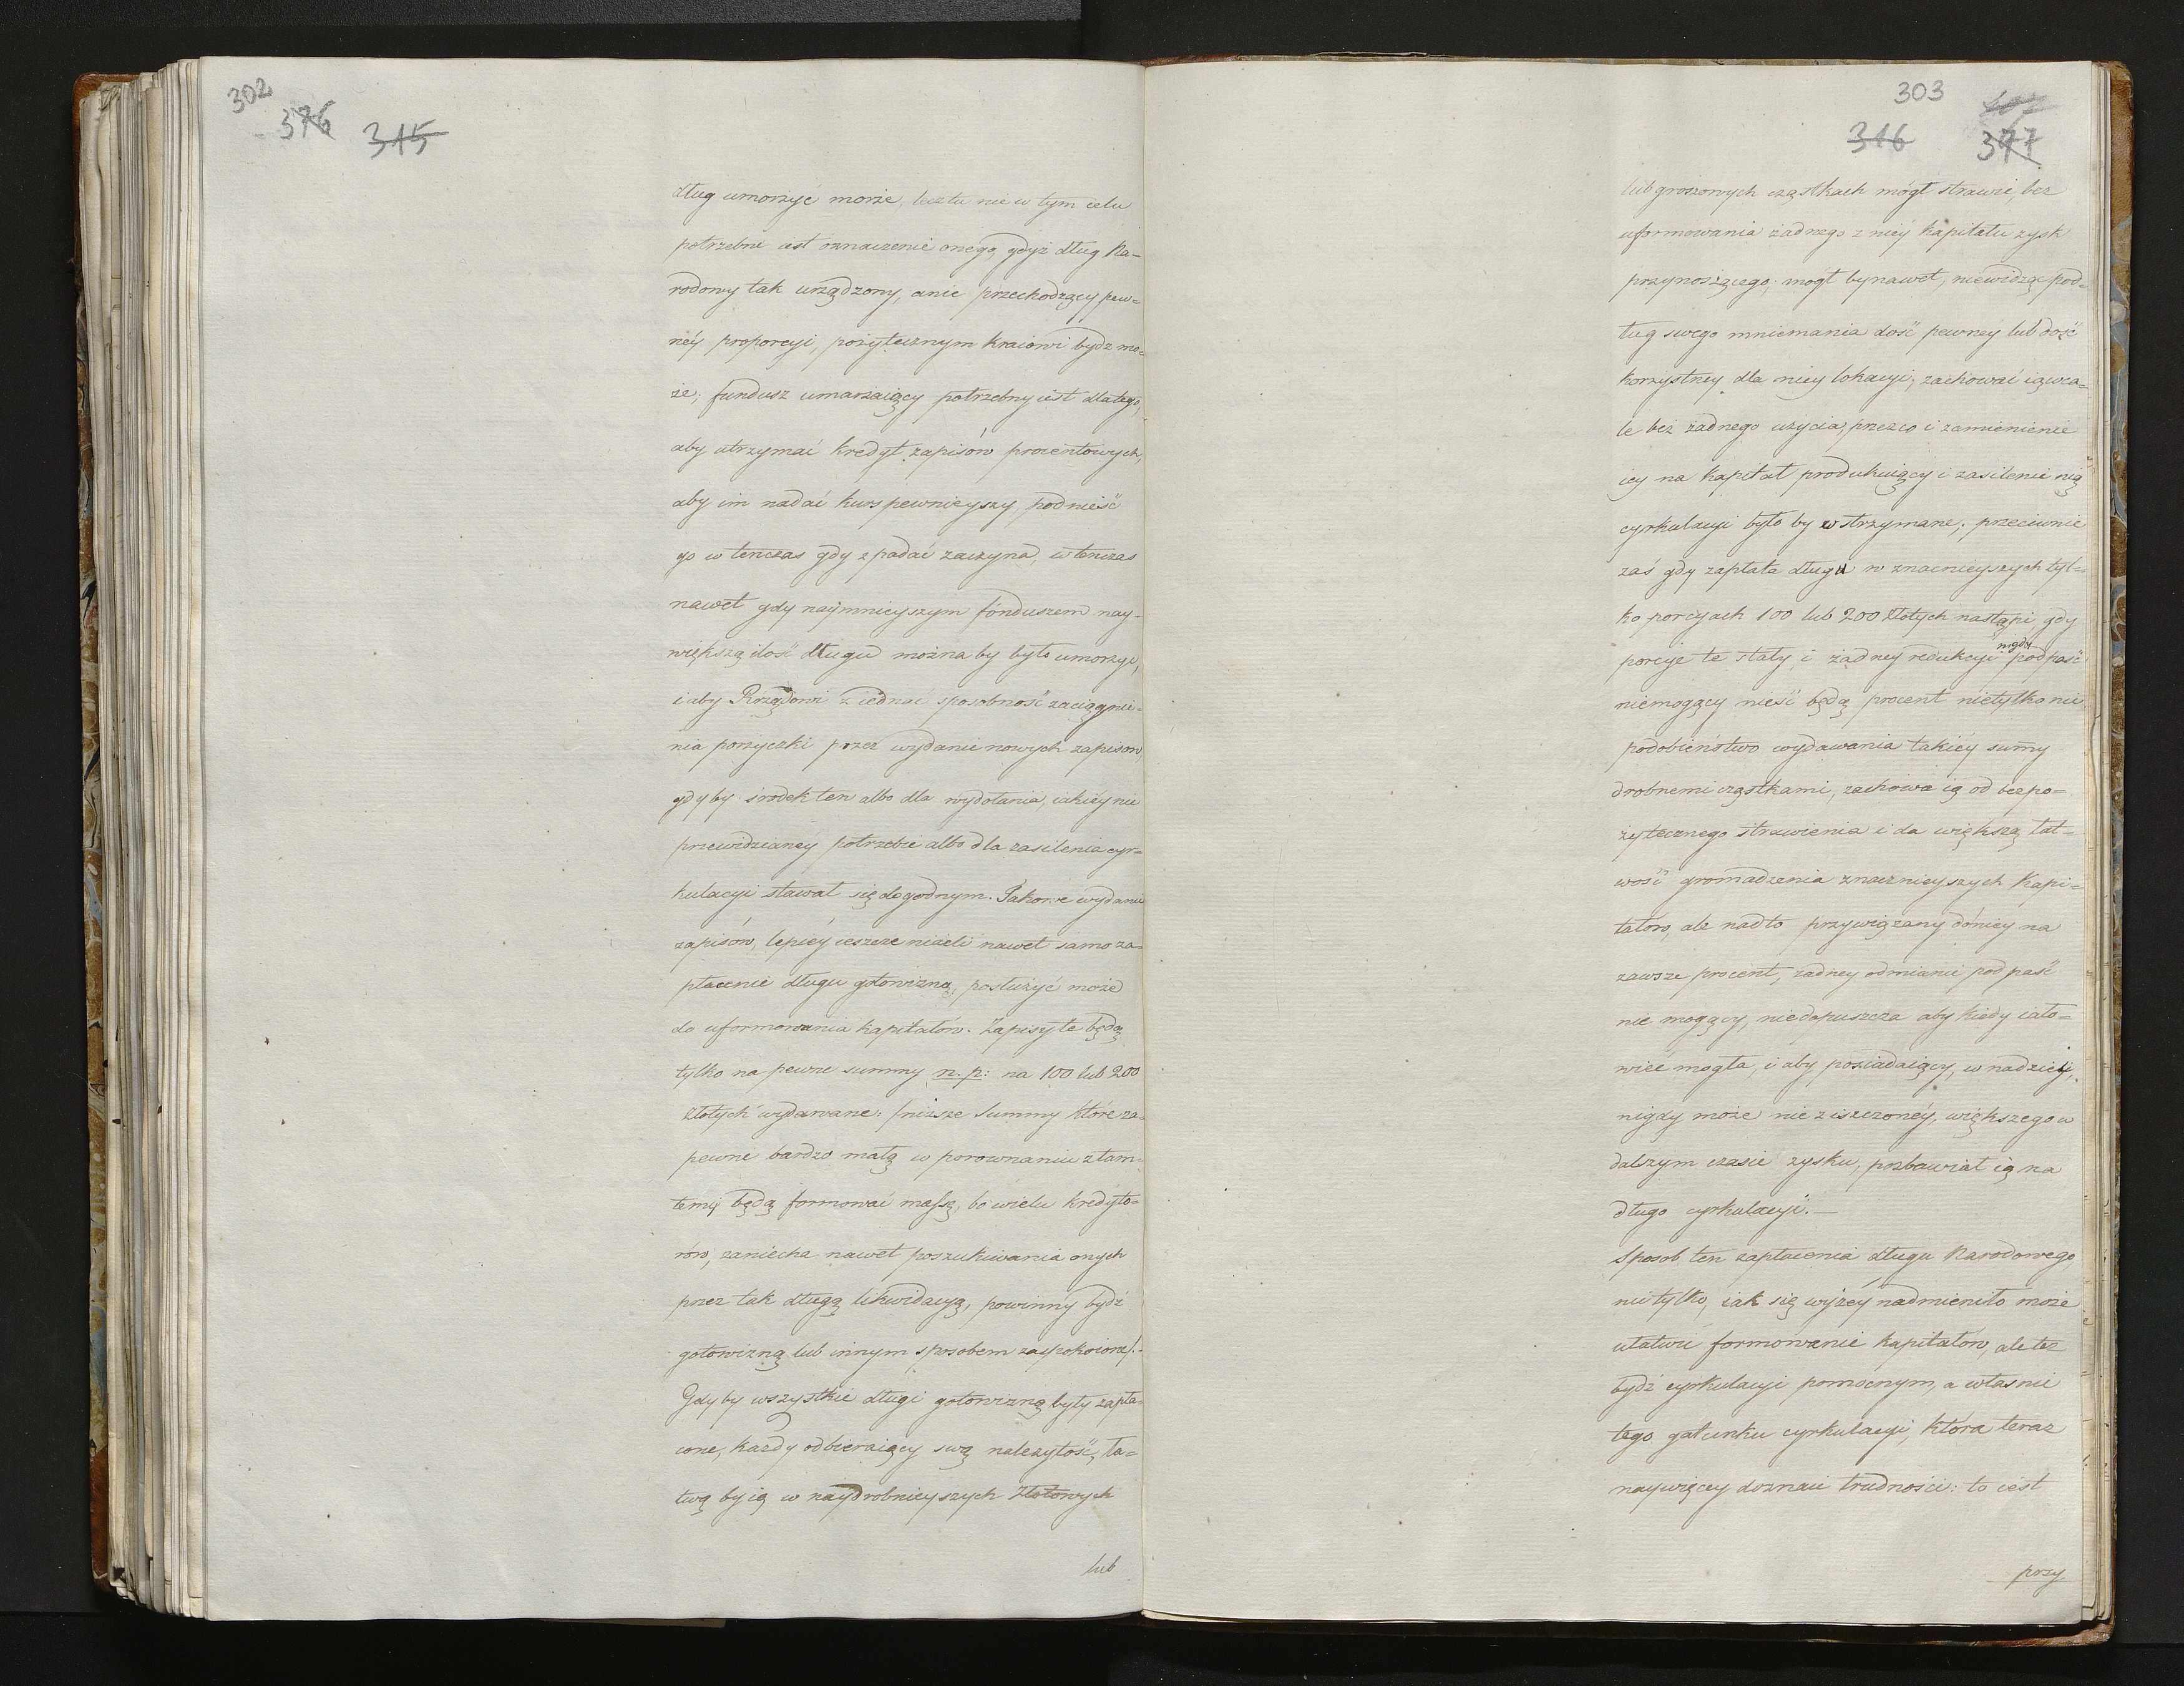 302
376 315
dług umorzyć może, lecz tu nie w tym celu
potrzebne iest oznaczenie onego, gdyż dług Na-
rodowy tak urządzony, a nie przechodzący pew-
néy proporcyi, pożytecznym kraiowi bydz mo-
że; fundusz umarzaiący potrzebny iest dlatego,
aby utrzymać kredyt zapisów procentowych,
aby im nadać kurs pewnieyszy, podnieść
go w tenczas gdy spadać zaczyna, w tenczas
nawet gdy naymnieyszym fonduszem nay-
większą ilość długu można by było umorzyć,
i aby Rządowi ziednać sposobność zaciągnie-
nia pożyczki przez wydanie nowych zapisow,
gdyby srodek ten albo dla wydołania, iakiey nie
przewidzianéy potrzebie albo dla zasilenia cyr-
kulacyi stawał się dogodnym. Takowe wydanie
zapisów, lepiéy ieszcze niżeli nawet samo za-
płacenie długu gotowizną, posłużyć może
do uformowania kapitałów. Zapisy te będą
tylko na pewne summy n. p: na 100 lub 200
złotych wydawane: /niższe Summy które za-
pewne bardzo małą w porownaniu z tam-
temi będą formować massę, bo wielu kredyto-
rów, zaniecha nawet poszukiwania onych
przez tak długą likwidacyą, powinny bydź
gotowizną lub innym sposobem zaspokoione/.-
Gdyby wszystkie długi gotowizną były zapła-
cone, każdy odbieraiący swą należytość, ła-
twą by ią w naydrobnieyszych złotowych
lub
303
316 377
lub groszowych cząstkach mógł strawić, bez
uformowania żadnego z niéy kapitału zysk
przynoszącego; mogł by nawet, niewidząc pod-
ług swego mniemania dość pewney lub dość
korzystney dla niey lokacyi, zachować ią wca-
le bez żadnego użycia, przez co i zamienienie
iey na kapitał produkuiący i zasilenie nią
cyrkulacyi było by wstrzymane; przeciwnie
zaś gdy zapłata długu w znacnieyszych tyl-
ko porcyach 100 lub 200 złotych nastąpi, gdy
nigdy
porcye te stały, i żadney redukcyi podpaść
niemogący nieść będą procent nietylko nie
podobieństwo wydawania takiey summy
drobnemi cząstkami, zachowa ią od bezpo-
żytecznego strawienia i da większą łat-
wość gromadzenia znacznieyszych kapi-
tałow, ale nadto przywiązany do niey na
zawsze procent, żadney odmianie podpaść
nie mogący, niedopuszcza aby kiedy iało-
wieć mogła, i aby posiadaiący, w nadziei,
nigdy może nie ziszczonéy, większego w
dalszym czasie zysku, pozbawiał ią na
długo cyrkulacyi.—
Sposob ten zapłacenia długu Narodowego
nie tylko, iak się wyżéy nadmieniło może
ułatwić formowanie kapitałów, ale też
bydź cyrkulacyi pomocnym, a własnie
tego gatunku cyrkulacyi, która teraz
naywięcey doznaie trudności: to iest
przy